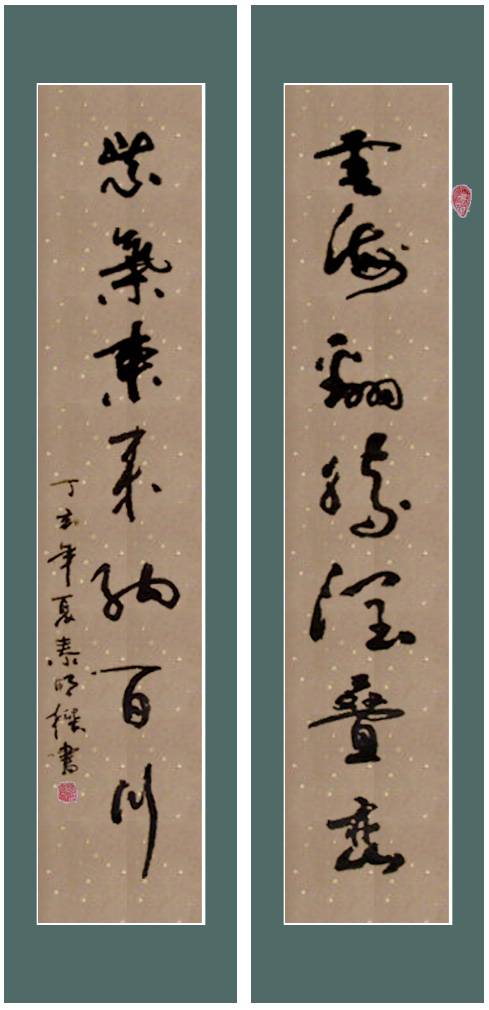 雲海翻騰潤疊巒
紫氣東來納百川
丁亥年夏泰明書